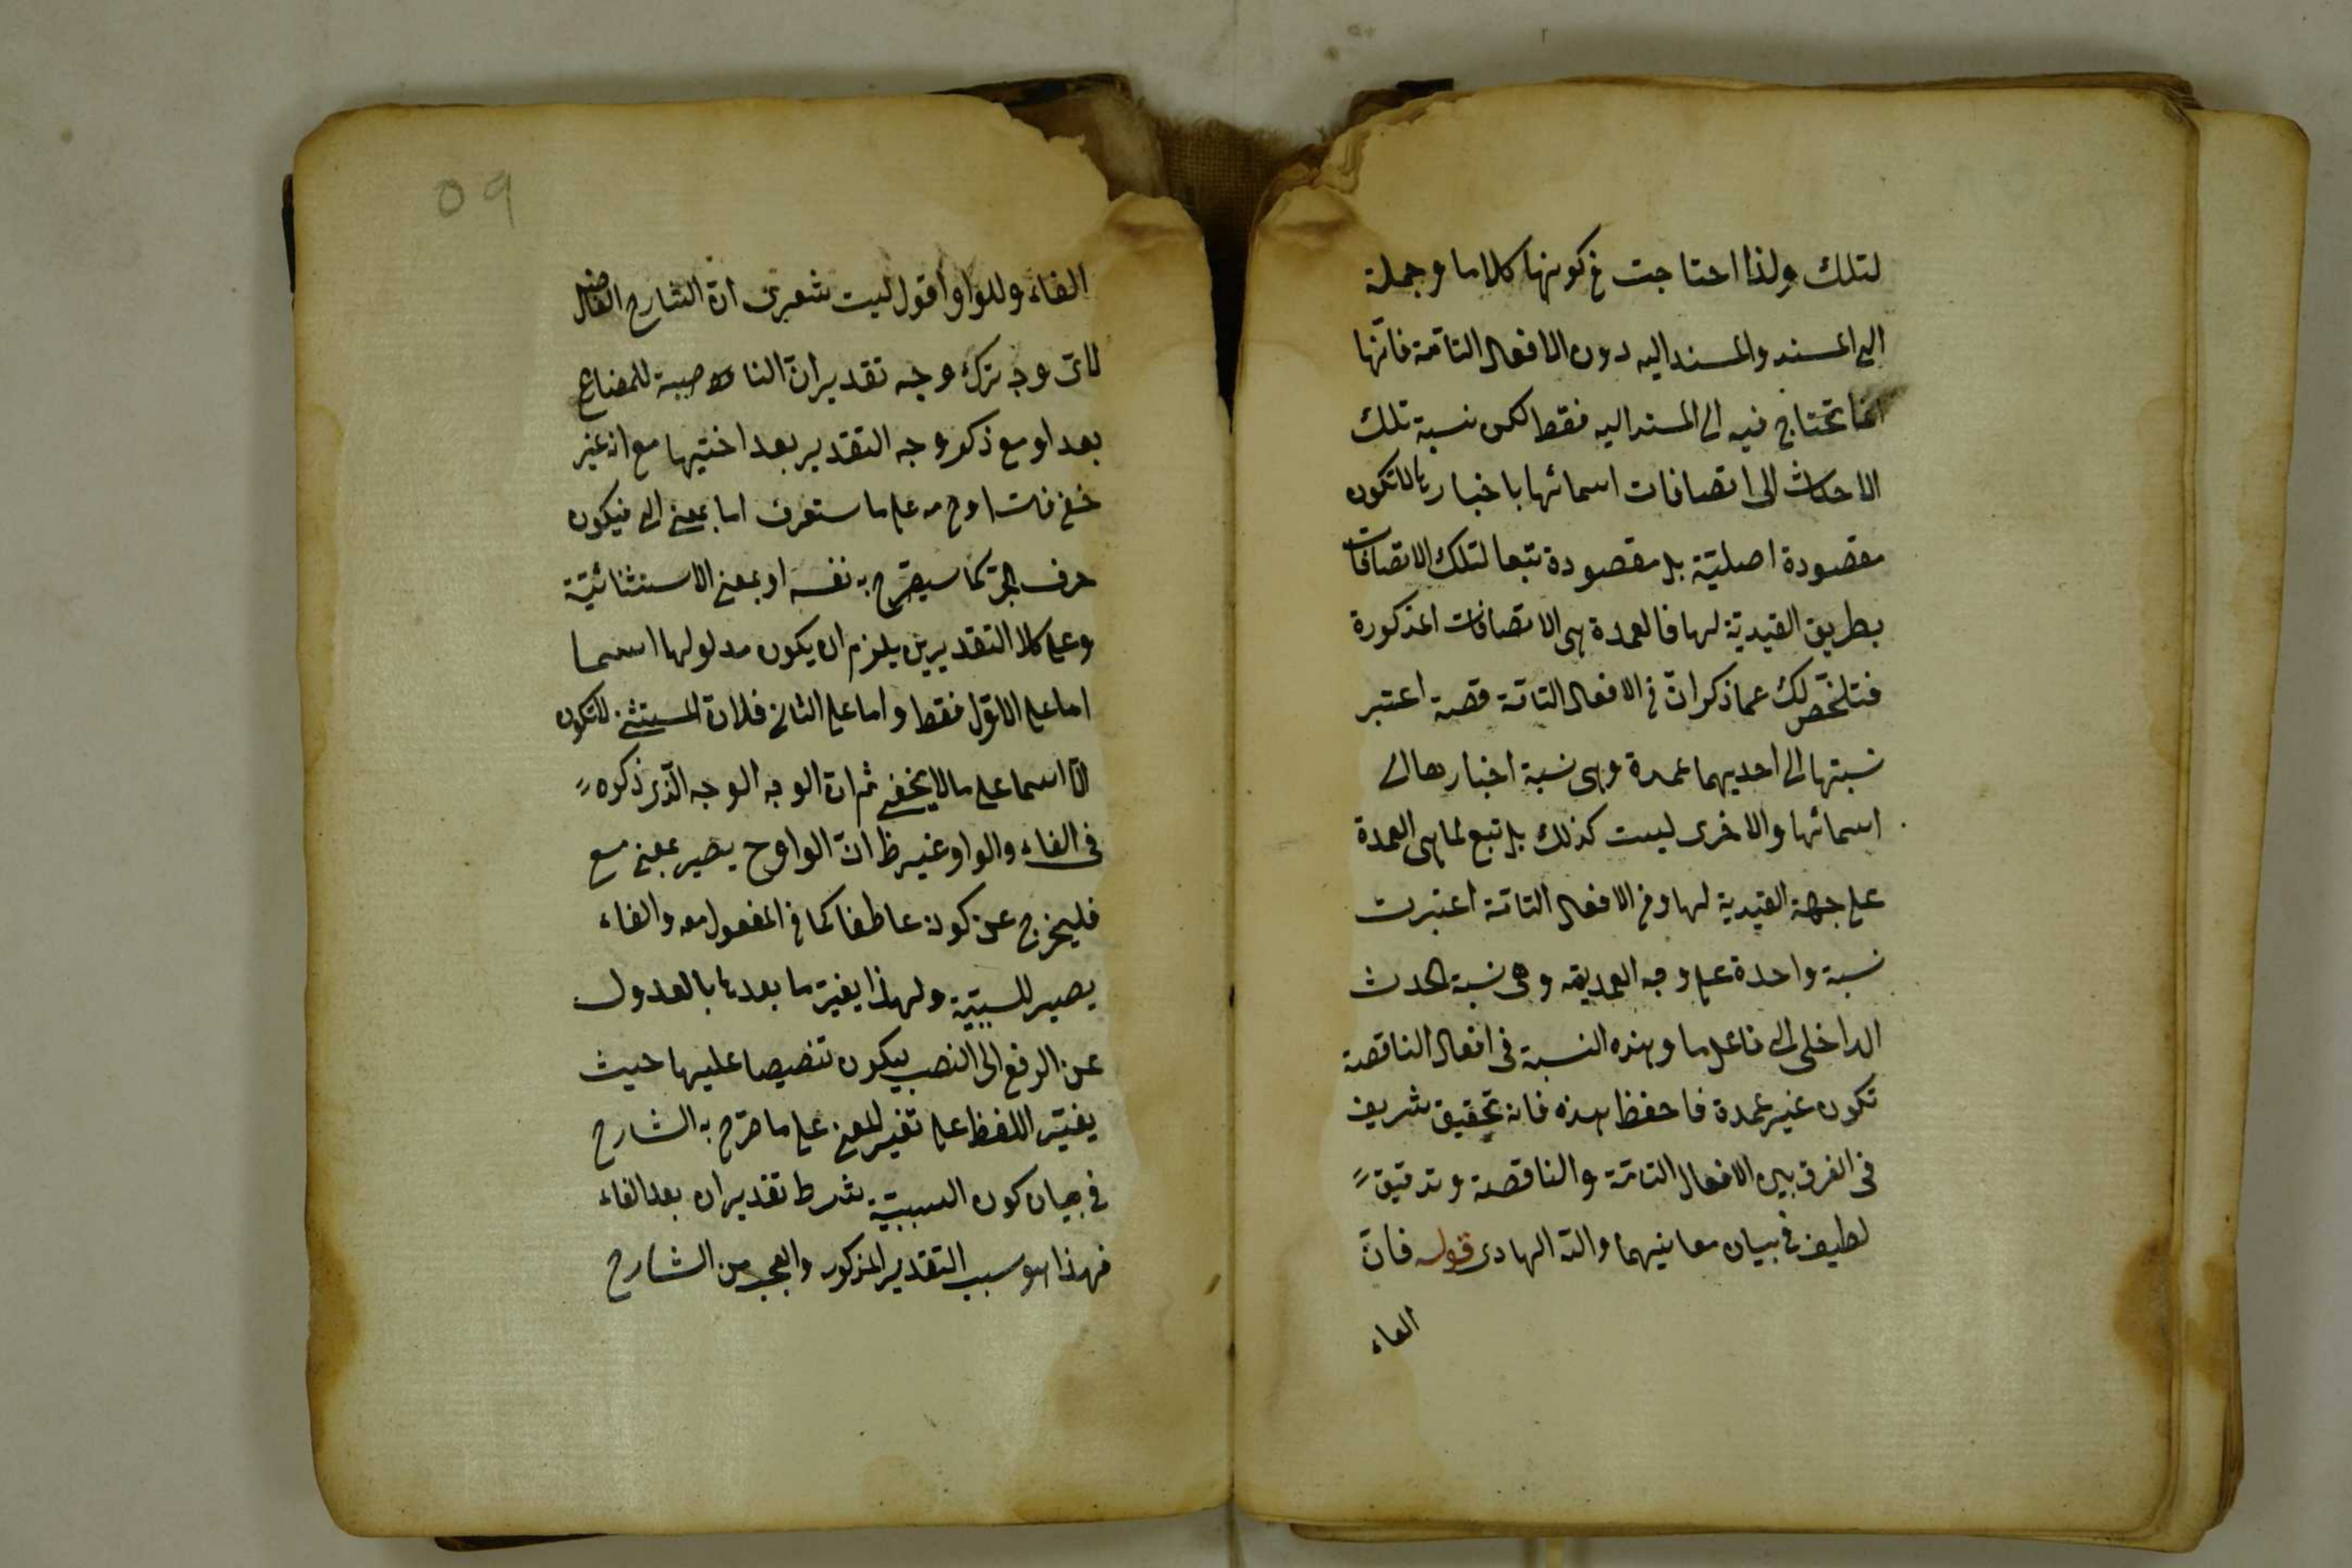 لتلك ولذا احتاجت فى كونها كلاما وجملة
الى المسند والمسند اليه دون الافعال التامة فانها
انما تحتاج فيه الى المسند اليه فقط لكن نسبة تلك
الاحداث الى اتصافات اسمائها باخبارها لا تكون
مقصودة اصلية بل مقصودة تبعا لتلك الاتصافات
بطريق القيدية لها فالعمدة هى الاتصافات المذكورة
فتلخص لك عما ذكر ان فى الافعال التامة قصة اعتبر
نسبتها الى احديهما عمدة وهى نسبة اخبارها الى
اسمائها والاخرى ليست كذلك بل تبع لما هى العمدة
على جهة القيدية لها وفى الافعال التامة اعتبرت
نسبة واحدة على وجه العمدية وهى نسبة الحدث
الداخلى الى فاعل ما وهذه النسبة فى افعال الناقصة
تكون غير عمدة فاحفظ هذه فانه تحقيق شريف
فى الفرق بين الافعال التامة والناقصة وتدقيق
لطيف فى بيان معانيهما والله الهادى قوله فان
الفاء
٥٩
الفاء وللواو اقول ليت شعرى ان الشارح الفاضل
لاى وجه ترك وجه تقدير ان الناصبة للمضارع
بعد او مع ذكر وجه التقدير بعد اختيها مع انه غير
خفى فان او ح على ما ستعرف اما بمعنى الى فيكون
حرف الجر كما سيصرح به نفسه او بمعنى الا ستثنائية
وعلى كلا التقديرين يلزم ان يكون مدلولها اسما
اما على الاول فقط واما على الثانى فلان المستثنى لا تكون
الا اسما على ما لا يخفى ثم ان الوجه الوجه الذى ذكره
فى الفاء والواو غير ظ ان الواو ح يصير بمعنى مع
فليخرج عن كونه عاطفا كما فى المفعول معه والفاء
يصير للسببية ولهذا يغير ما بعدها بالعدول
عن الرفع الى النصب ليكون تنصيصا عليها حيث
يغير اللفظ على تغير المعنى على ما صرح به الشارح
فى بيان كون السببية شرط تقدير ان بعد الفاء
فهذا هو سبب التقدير المذكور والعجب من الشارح